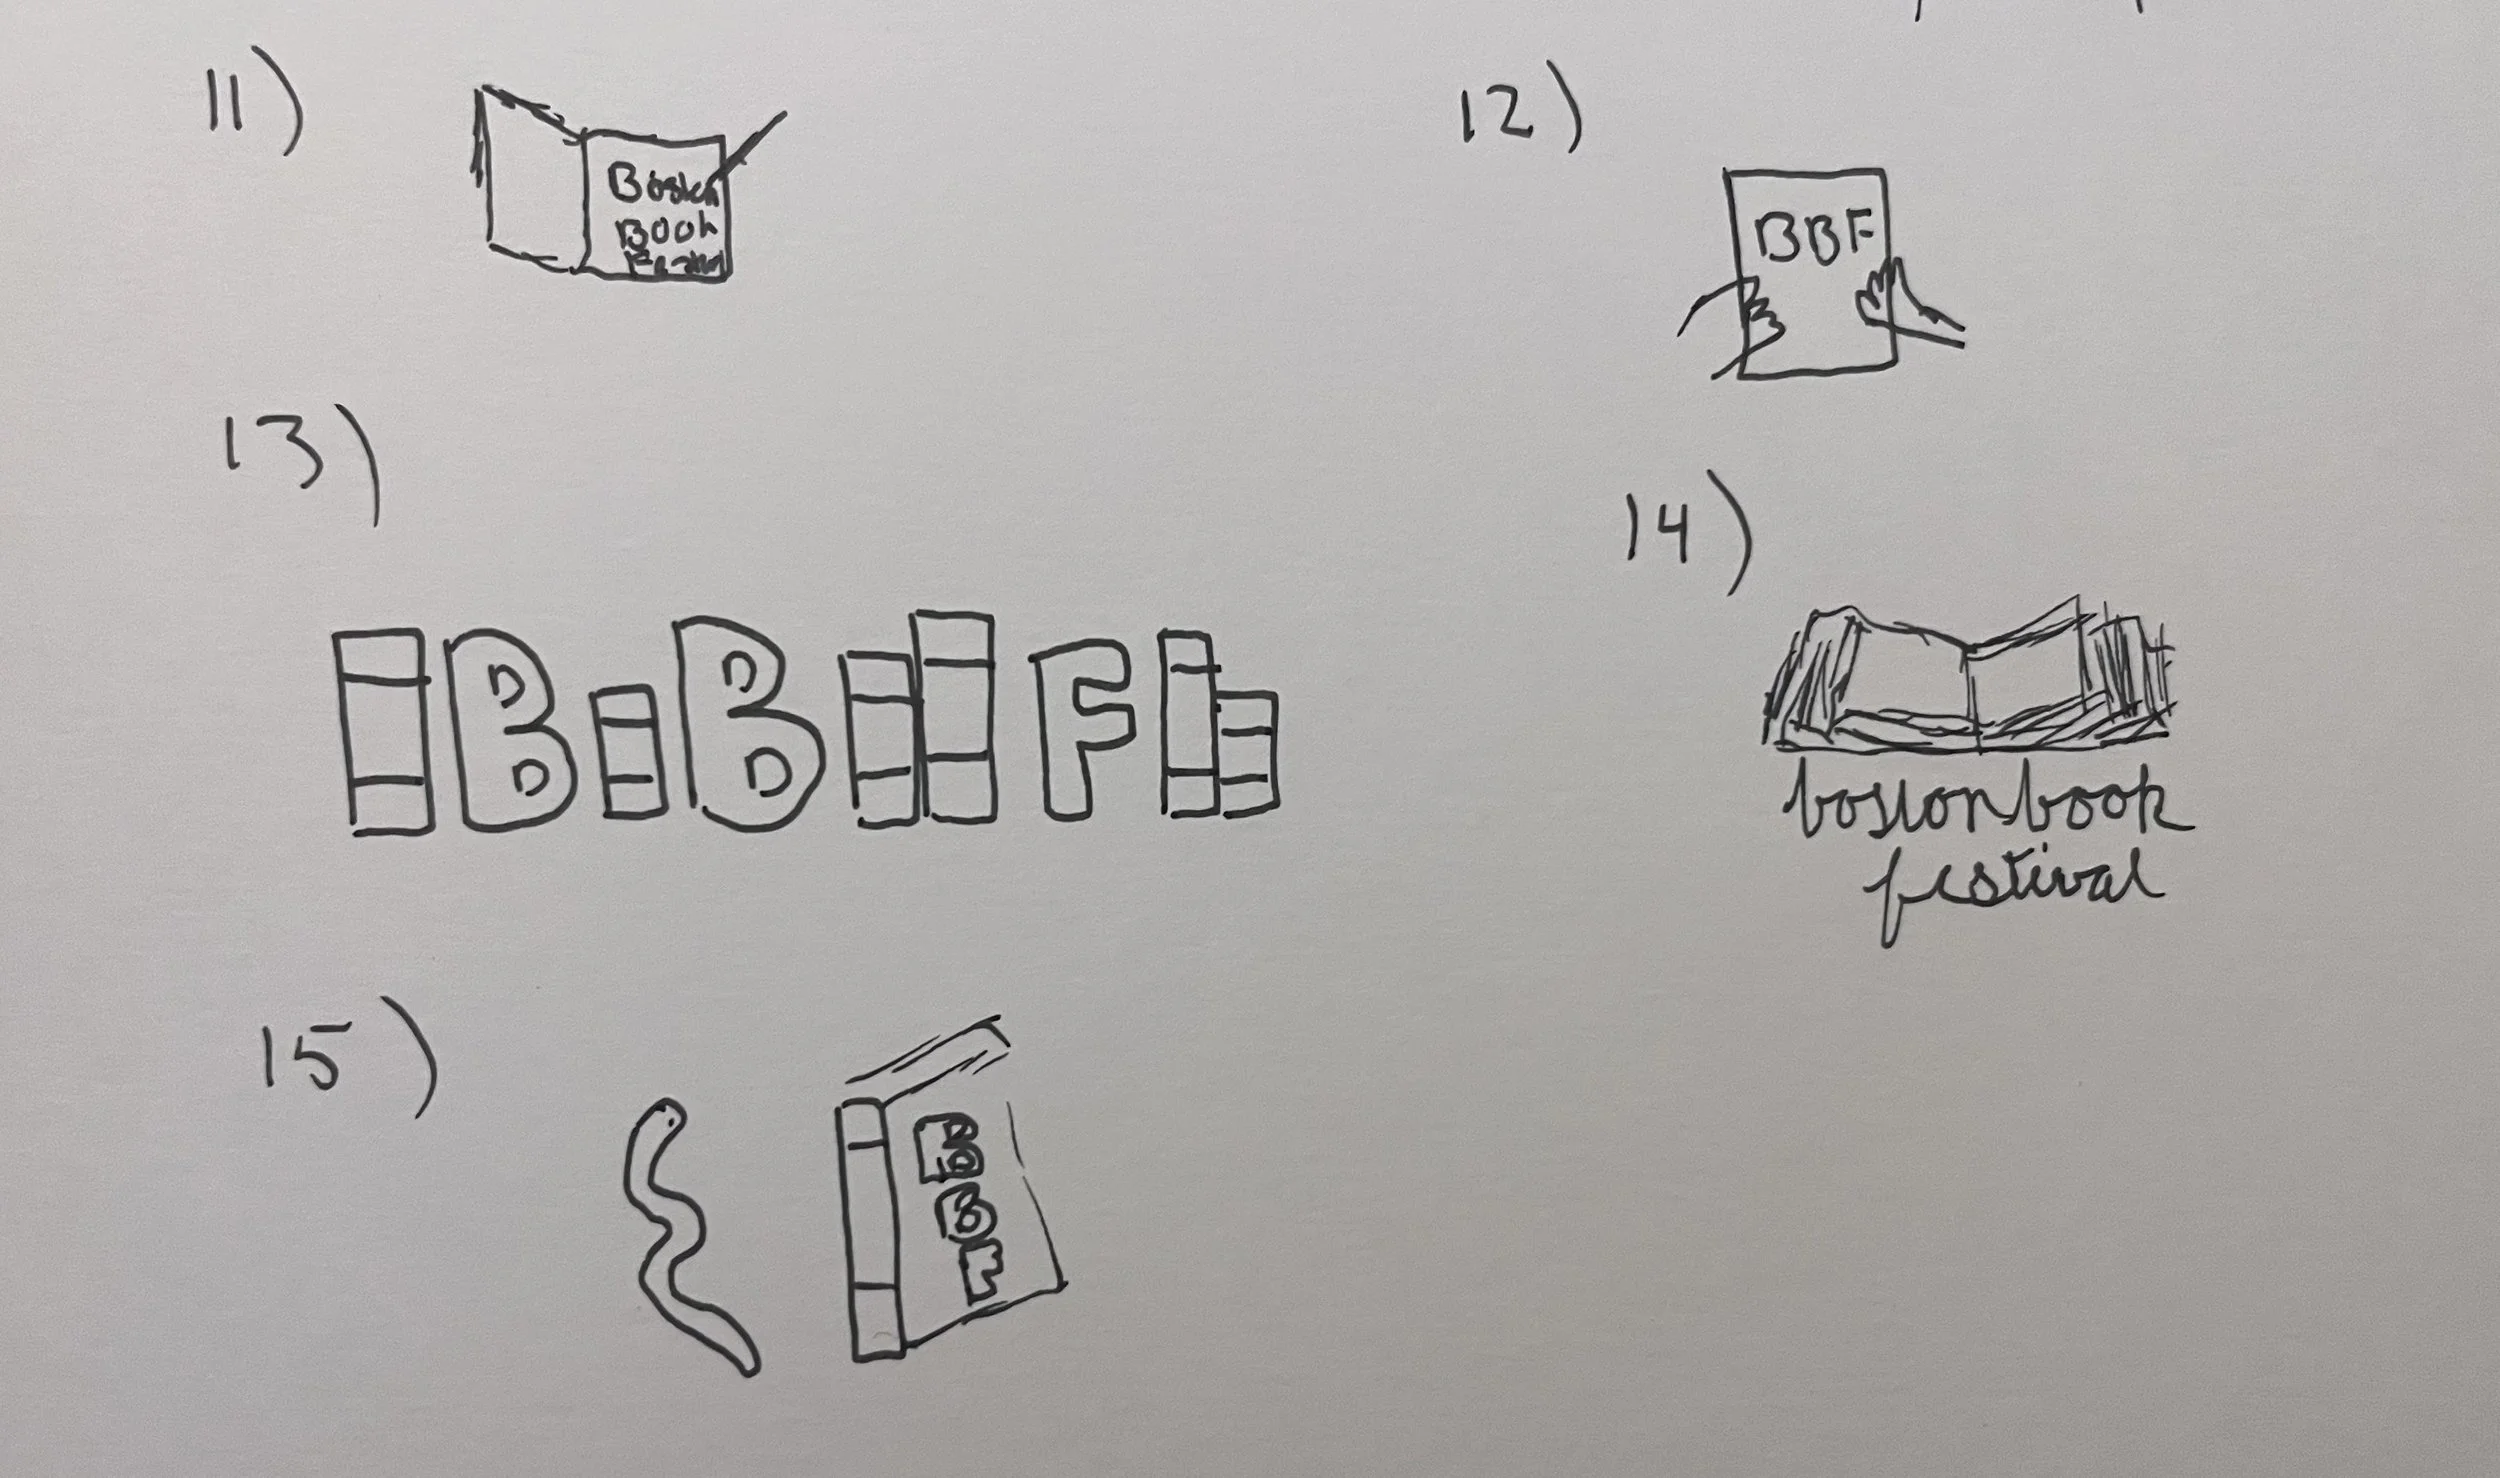 11)
Boston
Book
12)
BBF
13)
BBF
14)
boston book
festival
15)
B
B
F